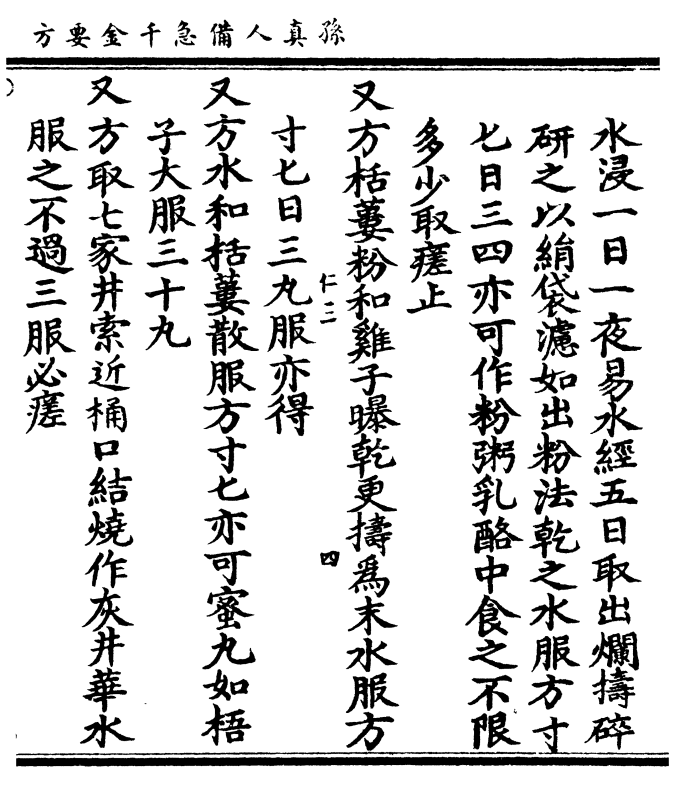 孫真人備急千金要方
水浸一日一夜易水經五日取出爛擣碎
研之以絹袋濾如出粉法乾之水服方寸
匕日三四亦可作粉粥乳酪中食之不限
多少取瘥止
又方栝蔞粉和雞子曝乾更擣爲末水服方
寸匕日三丸服亦得
仁三
四
又方水和栝蔞散服方寸匕亦可蜜丸如梧
子大服三十丸
又方取七家井索近桶口結燒作灰井華水
服之不過三服必瘥